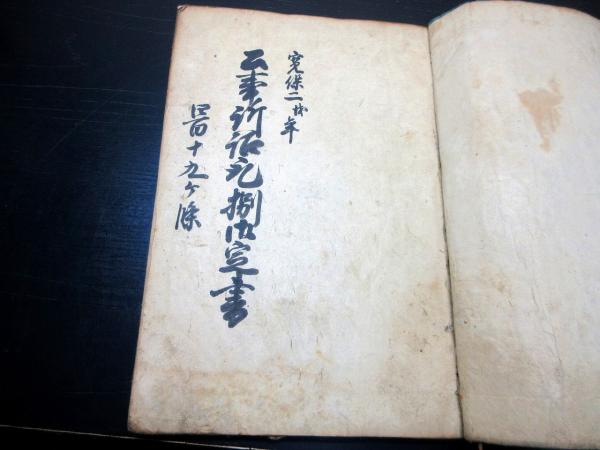 寛保二戌年
公事訴訟取捌御定書
十九ヶ條